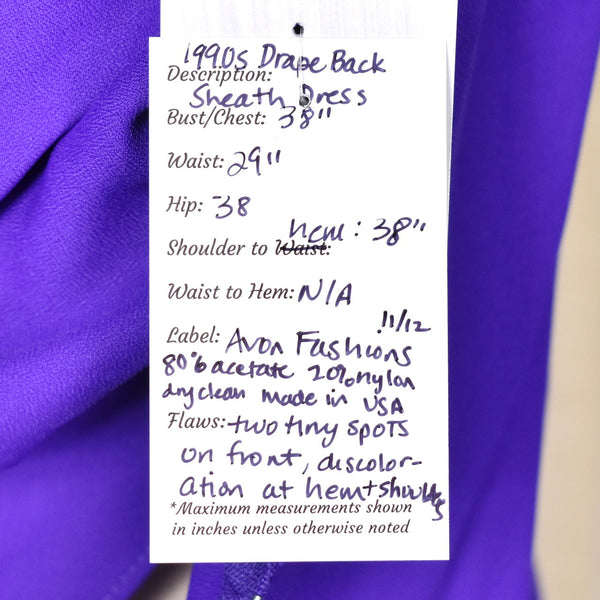 1990s Drape Back
Description:
Sheath Dress
Bust/Chest: 38"
Waist: 29"
Hip: 38
hem: 38"
Shoulder to Waist:
Waist to Hem: N/A
11/12
Label: Avon Fashions
80% acetate 20% nylon
dryclean made in USA
Flaws: two tiny spots
on front, discolor-
ation at hem + shoulders
*Maximum measurements shown
in inches unless otherwise noted